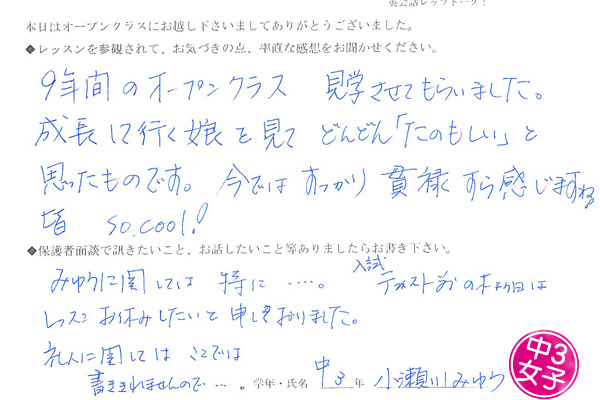 英会話レッツトーク!
本日はオープンクラスにお越し下さいましてありがとうございました。
◆レッスンを参観されて、お気づきの点、率直な感想をお聞かせください。
9年間のオープンクラス 見学させてもらいました。
成長して行く娘を見て どんどん「たのもしい」と
思ったものです。今ではすっかり貫禄すら感じますね
皆 so.cool!
◆保護者面談で訊きたいこと、お話したいこと等ありましたらお書き下さい。
みゆうに関しては 特に ‥‥。入試 テスト前の木曜日は
レッスン お休みしたいと申しておりました。
に関しては ここでは
書ききれませんので‥‥。学年・氏名 中3年 小瀬川みゆう
中3
女子